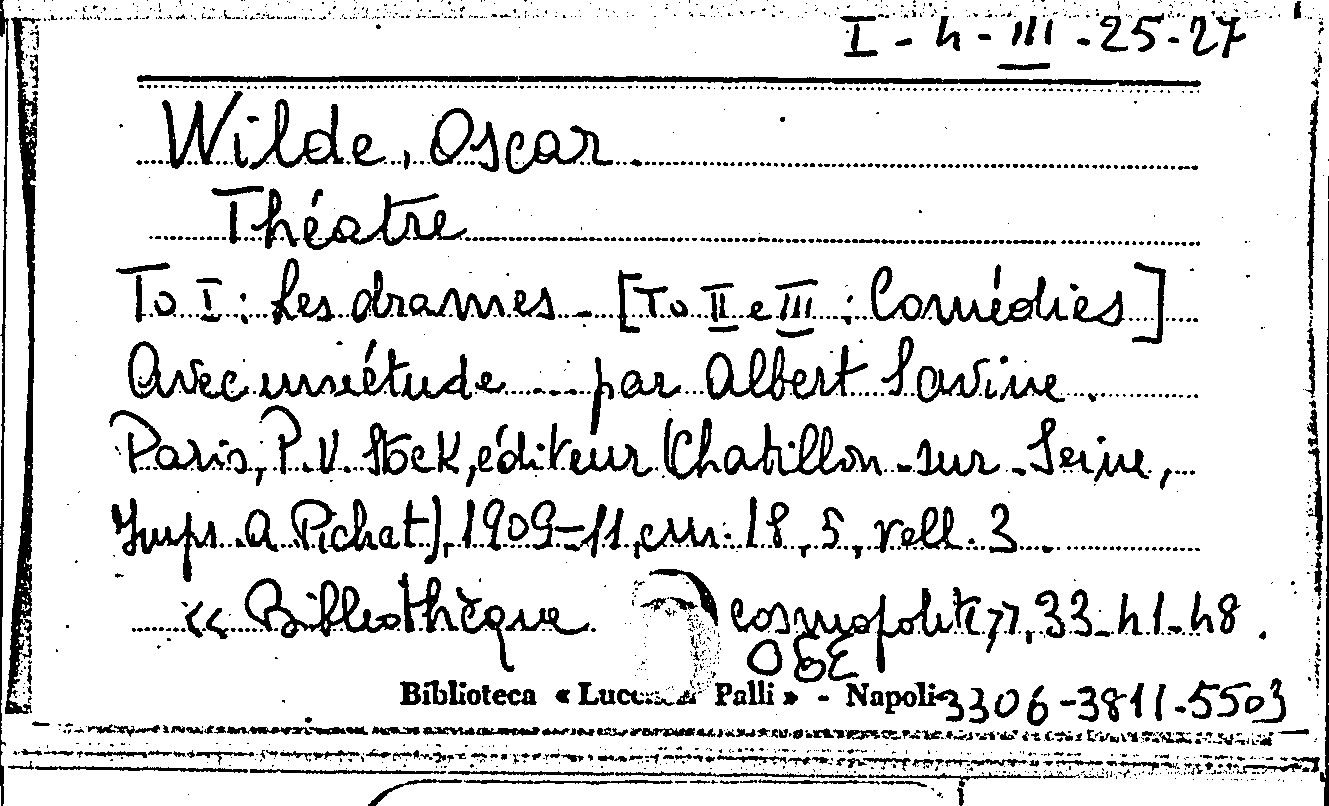 I - 4 - III - 25-27
Wilde, Oscar.
Théatre
To I: Les drames - [To II e III : Comédies]
Avec une étude ... par Albert Savine.
Paris, P.V. Stock, éditeur (Chatillon-sur-Seine,
Impr. A. Pichat), 1909-11, cm. 18,5, voll. 3.
« Bibliothèque cosmopolite », 33-41-48.
Biblioteca « Palli » - Napoli 3306-3811-5503